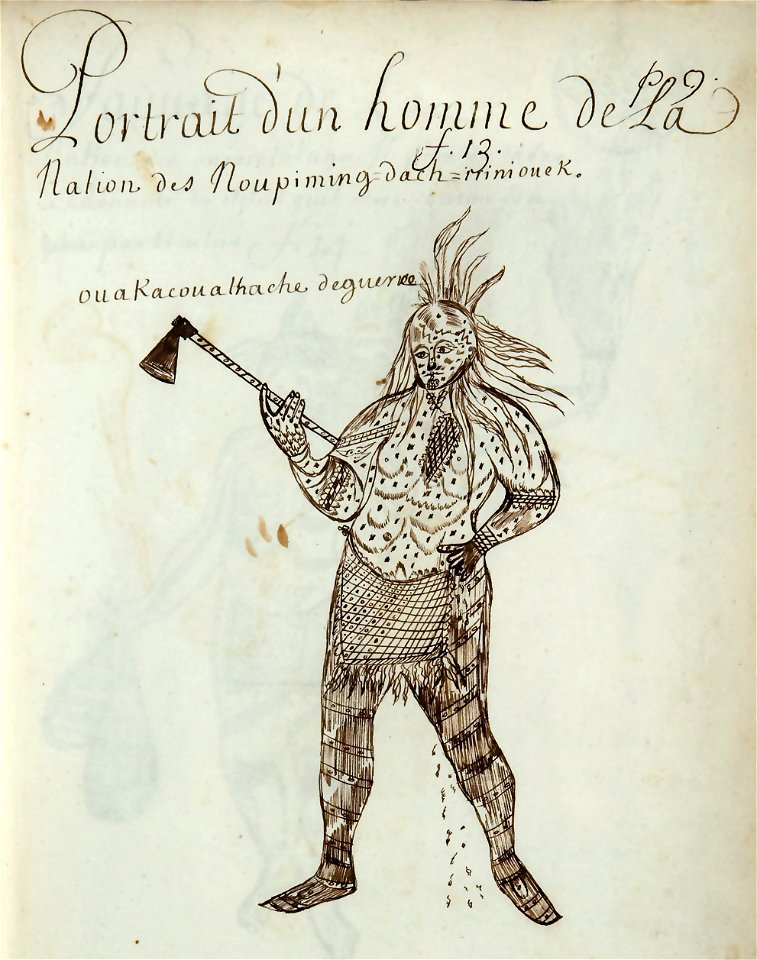 Portrait d'un homme de La
P 9.
f. 13.
Nation des Noupiming=dach=iriniouek.
ouaKacoualhache deguerre